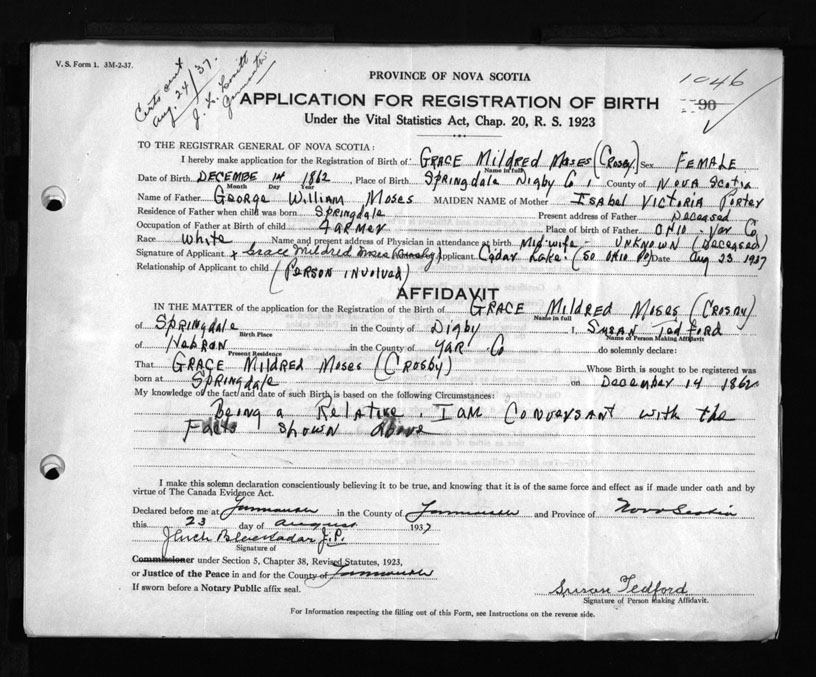 V. S. Form 1. 3M-2-37.
Certs sent
Aug. 24/37.
J. L.
1046
90
PROVINCE OF NOVA SCOTIA
APPLICATION FOR REGISTRATION OF BIRTH
Under the Vital Statistics Act, Chap. 20, R. S. 1923
TO THE REGISTRAR GENERAL OF NOVA SCOTIA:
I hereby make application for the Registration of Birth of GRACE Mildred MOSES (CROSBY) Sex FEMALE
Name in full
Date of Birth DECEMBE 14 1862, Place of Birth SPRINGDALE Digby Co, County of NOVA SCOTIA
Month Day Year
Name of Father GEORGE William MOSES MAIDEN NAME of Mother ISABEL VICTORIA PORTER
Residence of Father when child was born SPRINGDALE Present address of Father DECEASED
Occupation of Father at Birth of child FARMER Place of birth of Father OHIO. YAR Co
Race White Name and present address of Physician in attendance at birth Mid-wife - UNKNOWN (DECEASED)
Signature of Applicant x Grace Mildred Moses (Crosby) Applicant Cedar Lake. (SO OHIO PO) Date Aug 23 1937
Relationship of Applicant to child (PERSON INVOLVED)
AFFIDAVIT
IN THE MATTER of the application for the Registration of the Birth of GRACE Mildred MOSES (CROSBY)
Name in full
of SPRINGDALE in the County of Digby I, SUSAN TEDFORD
Birth Place Name of Person Making Affidavit
of HEBRON in the County of YAR Co do solemnly declare:
Present Residence
That GRACE Mildred MOSES (CROSBY) Whose Birth is sought to be registered was
born at SPRINGDALE on December 14 1862
My knowledge of the fact and date of such Birth is based on the following Circumstances:
Being a Relative. I am Conversant with the
Facts shown above
I make this solemn declaration conscientiously believing it to be true, and knowing that it is of the same force and effect as if made under oath and by
virtue of The Canada Evidence Act.
Declared before me at Yarmouth in the County of Yarmouth and Province of Nova Scotia
this 23 day of August 1937
J.P.
Signature of
Commissioner under Section 5, Chapter 38, Revised Statutes, 1923,
or Justice of the Peace in and for the County of Yarmouth
If sworn before a Notary Public affix seal.
Susan Tedford
Signature of Person Making Affidavit.
For Information respecting the filling out of this Form, see Instructions on the reverse side.